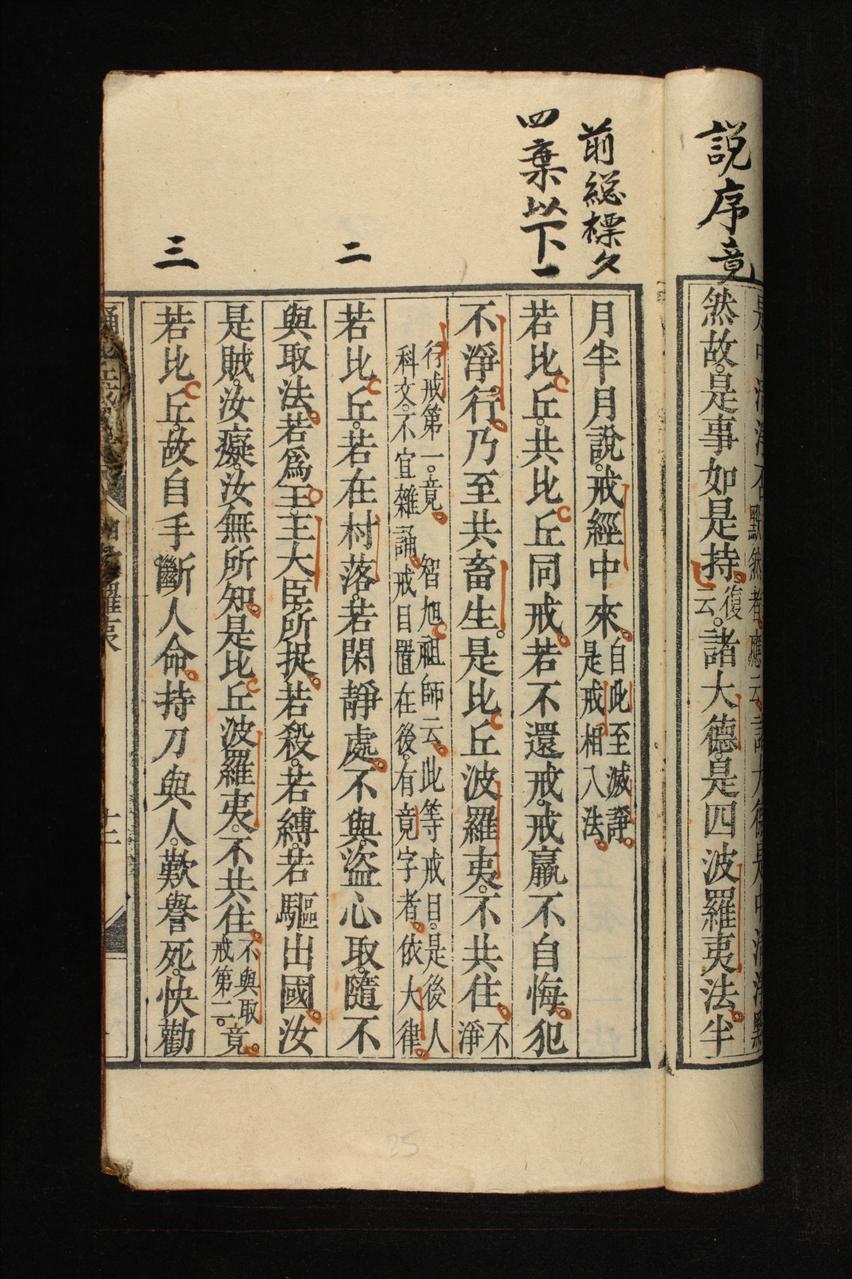 説序竟
然故是事如是持復云諸大德是四波羅夷法半
前総標久
四棄以下一
二
三
月半月說戒經中來自此至滅諍
是戒相入法
若比丘共比丘同戒若不還戒戒羸不自悔犯
不淨行乃至共畜生是比丘波羅夷不共住不淨
行戒第一竟 智旭祖師云此等戒目是後人
科文不宜雜誦戒目置在後有竟字者依大律
若比丘若在村落若閑靜處不與盜心取隨不
與取法若爲王王大臣所捉若殺若縛若驅出國汝
是賊汝癡汝無所知是比丘波羅夷不共住不與取
戒第二竟
若比丘故自手斷人命持刀與人歎譽死快勸